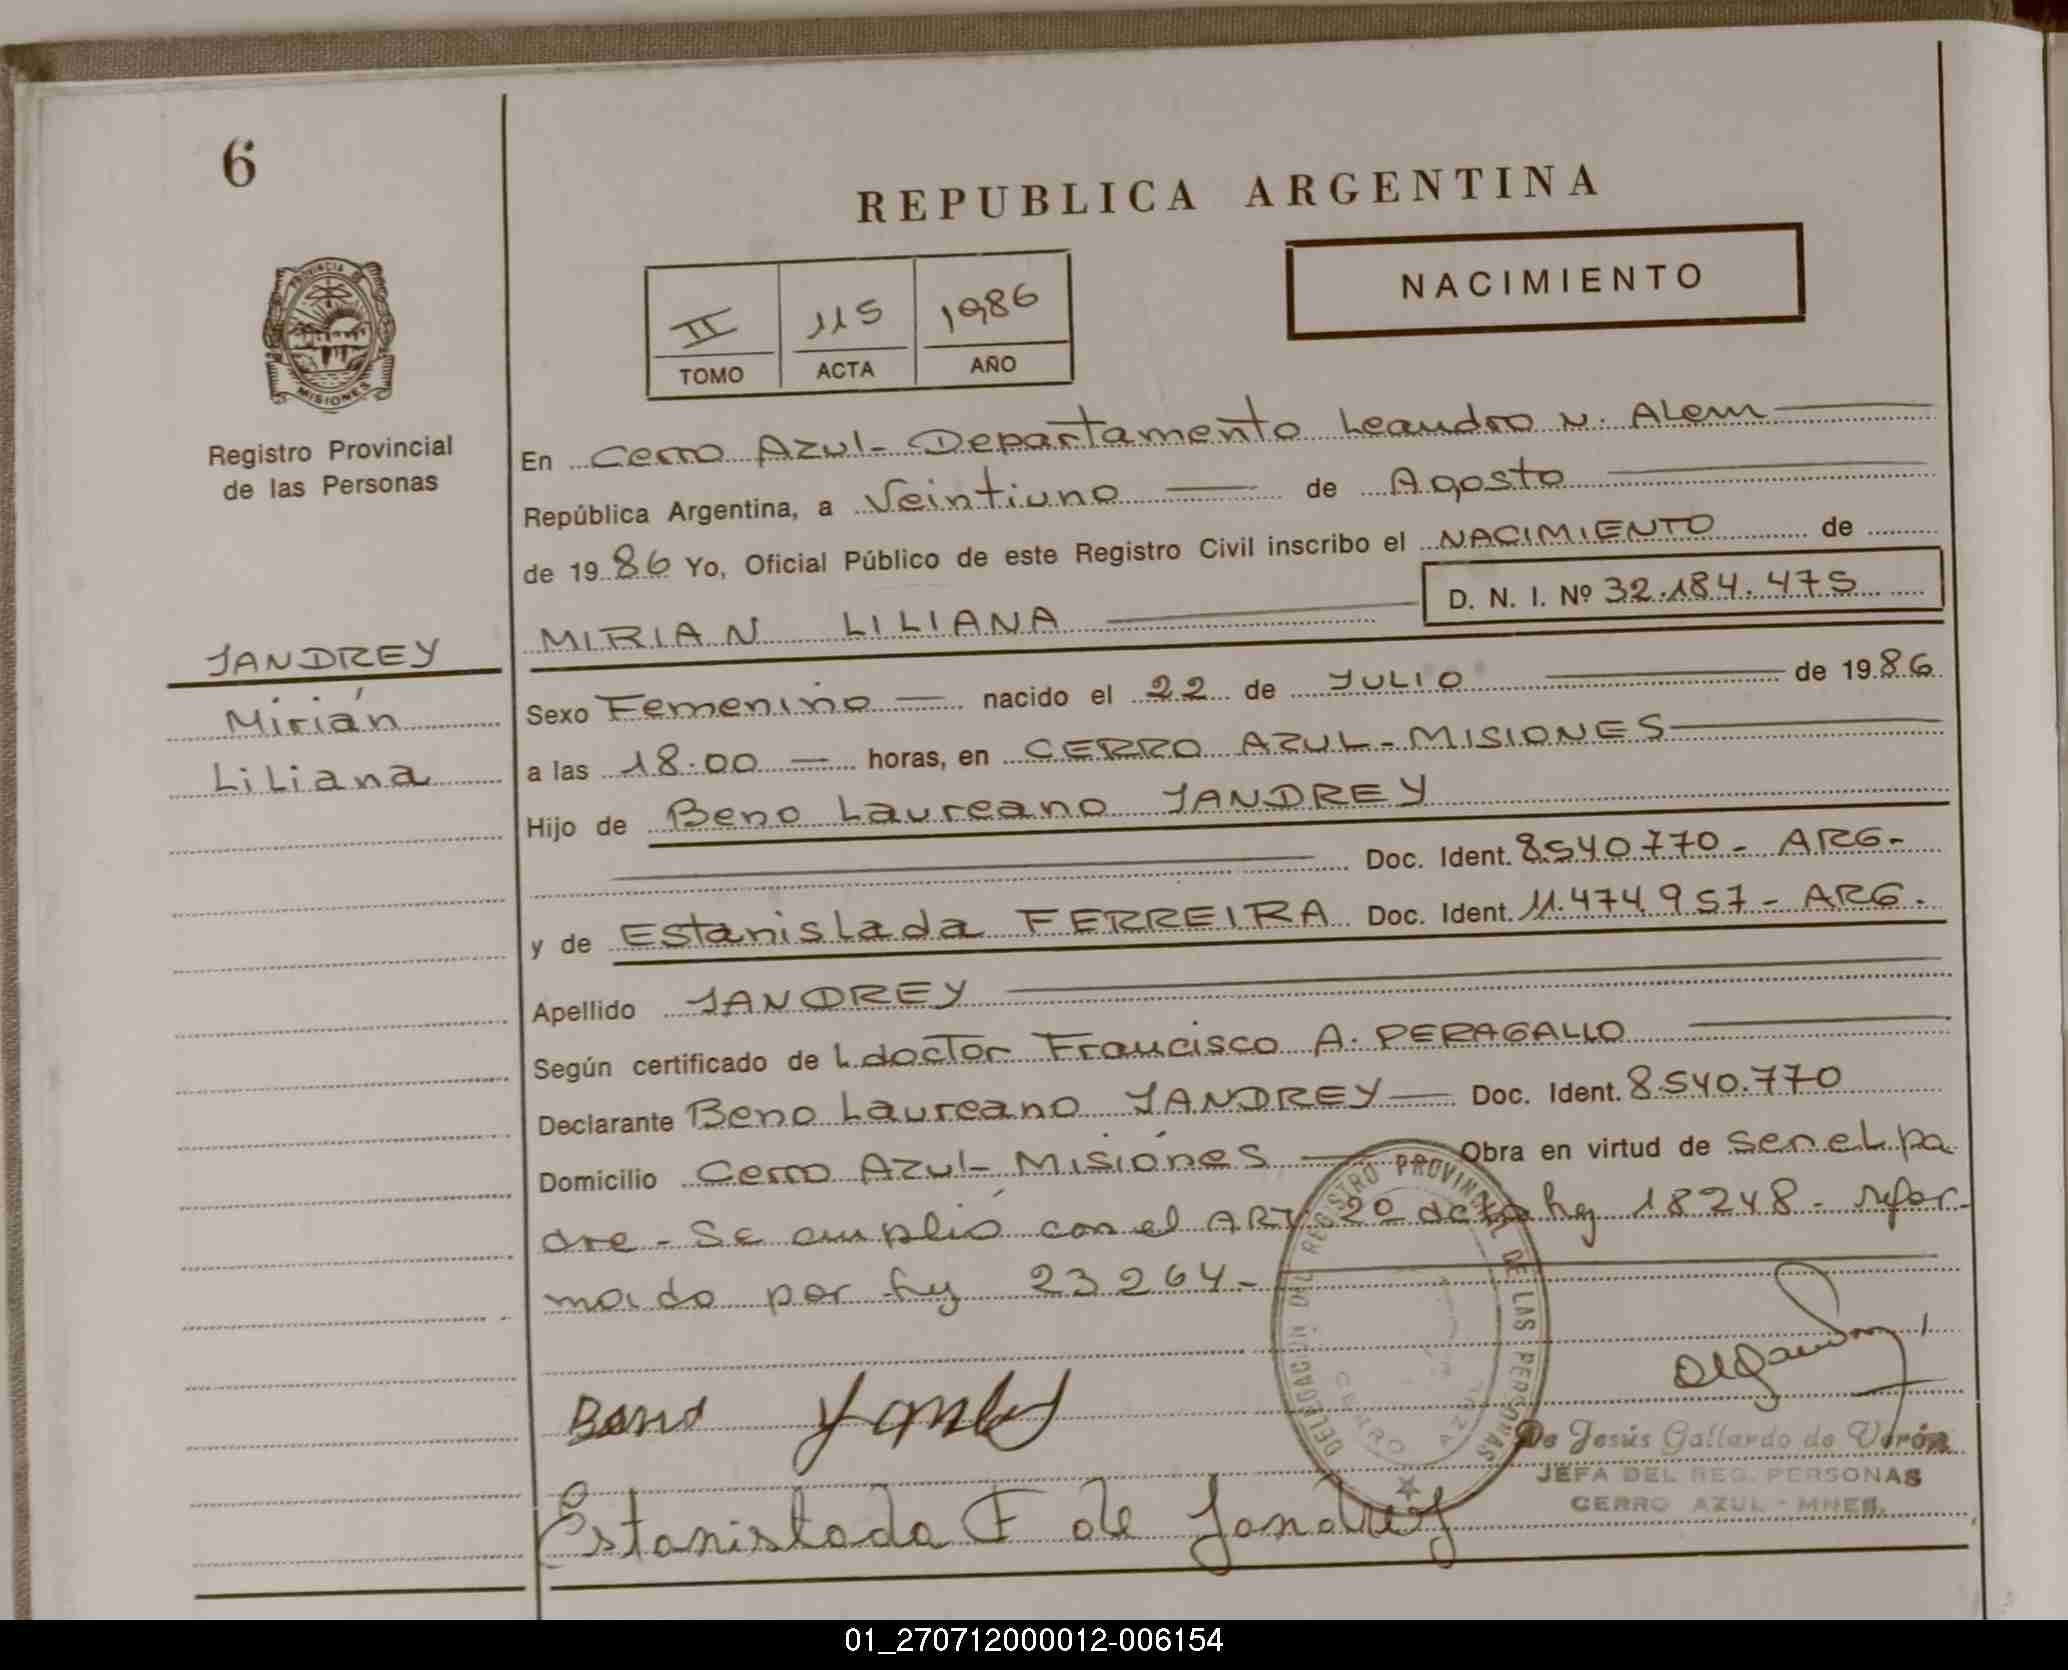 6
REPUBLICA ARGENTINA
PROVINCIA DE
MISIONES
II 115 1986
TOMO ACTA AÑO
NACIMIENTO
Registro Provincial
de las Personas
JANDREY
Mirián
Liliana
En Cerro Azul- Departamento Leandro N. Alem
República Argentina, a Veintiuno de Agosto
de 1986 Yo, Oficial Público de este Registro Civil inscribo el NACIMIENTO de
MIRIAN LILIANA D. N. I. Nº 32.184.475
Sexo Femenino nacido el 22 de JULIO de 1986
a las 18.00 horas, en CERRO AZUL-MISIONES
Hijo de Beno Laureano JANDREY
Doc. Ident. 8.540.770- ARG-
y de Estanislada FERREIRA Doc. Ident. 11.474.957- ARG.
Apellido JANDREY
Según certificado de L doctor Francisco A. PERAGALLO
Declarante Beno Laureano JANDREY Doc. Ident. 8.540.770
Domicilio Cerro Azul- Misiónes Obra en virtud de ser el pa
dre - Se amplió con el ART. 20 de la ley 18248 - refor-
mado por ley 23264.-
DELEGACION DEL REGISTRO PROVINCIAL DE LAS PERSONAS
CERRO AZUL
Beno
Estanislada F de Jandrey
De Jesús Gallardo de Verón
JEFA DEL REG. PERSONAS
CERRO AZUL - MNES.
01_270712000012-006154